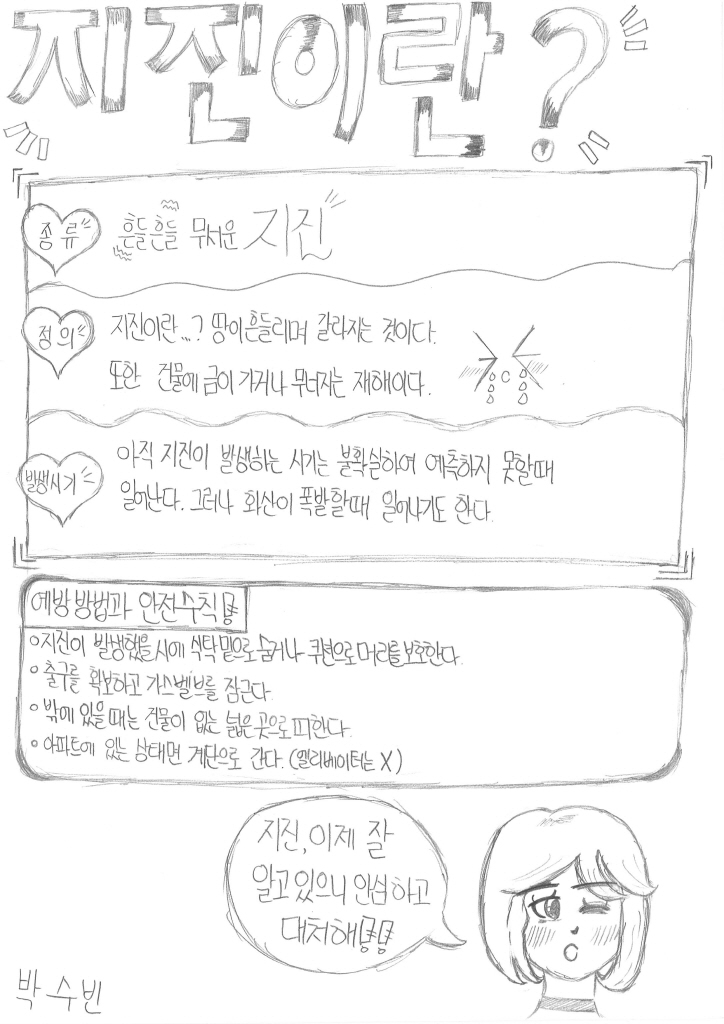 지진이란?
종류
흔들흔들 무서운 지진
정의
지진이란...? 땅이 흔들리며 갈라지는 것이다.
또한 건물에 금이 가거나 무너지는 재해이다.
발생시기
아직 지진이 발생하는 시기는 불확실하여 예측하지 못할때
일어난다. 그러나 화산이 폭발할때 일어나기도 한다.
예방 방법과 안전수칙!
지진이 발생했을 시에 식탁 밑으로 숨거나 쿠션으로 머리를 보호한다.
출구를 확보하고 가스벨브를 잠근다.
밖에 있을 때는 건물이 없는 넓은 곳으로 피한다.
아파트에 있는 상태면 계단으로 간다. (엘리베이터는 X)
지진, 이제 잘
알고 있으니 안심하고
대처해!!
박수빈